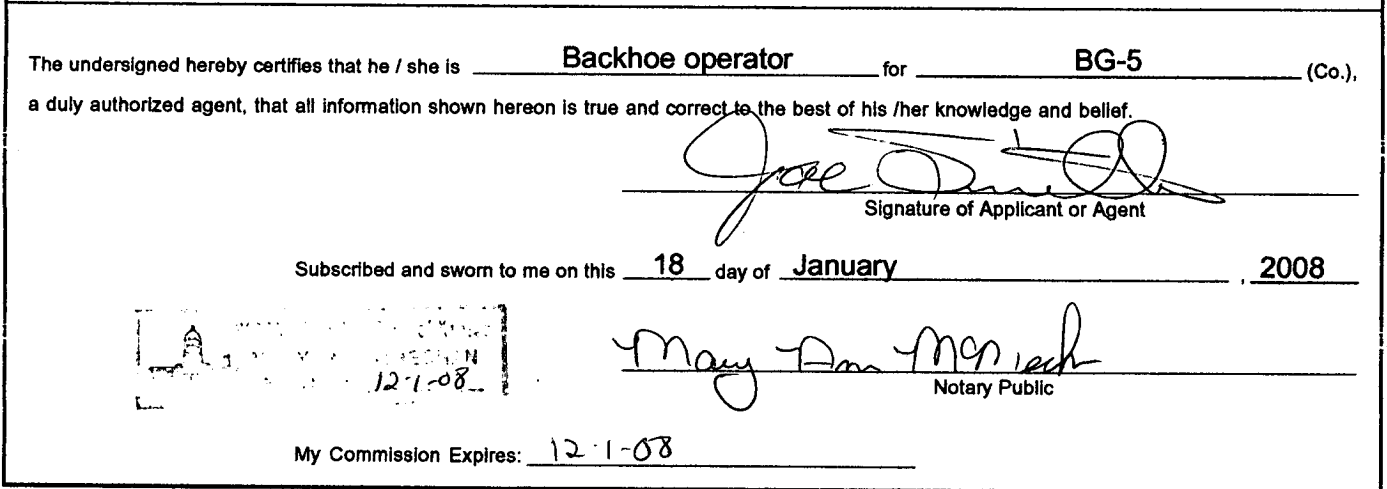 The undersigned hereby certifies that he / she is Backhoe operator for BG-5 (Co.),
a duly authorized agent, that all information shown hereon is true and correct to the best of his /her knowledge and belief.
Joe
Signature of Applicant or Agent
Subscribed and sworn to me on this 18 day of January , 2008
12-1-08
Mary Ann
Notary Public
My Commission Expires: 12-1-08